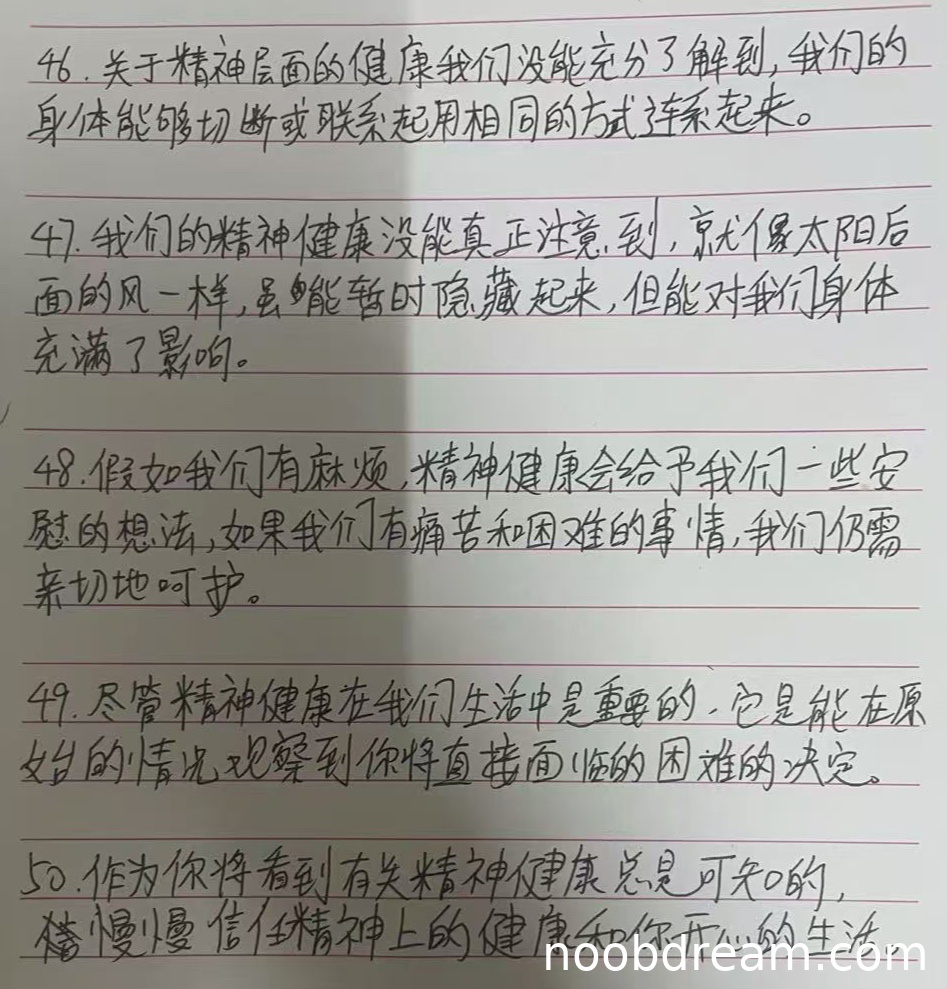 46.关于精神层面的健康我们没能充分了解到,我们的
身体能够切断或联系起用相同的方式连系起来。
47.我们的精神健康没能真正注意到,就像太阳后
面的风一样,虽能暂时隐藏起来,但能对我们身体
充满了影响。
48.假如我们有麻烦,精神健康会给予我们一些安
慰的想法,如果我们有痛苦和困难的事情,我们仍需
亲切地呵护。
49.尽管精神健康在我们生活中是重要的,它是能在原
始的情况观察到你将直接面临的困难的决定。
50.作为你将看到有关精神健康总是可知的,
慢慢信任精神上的健康和你开心的生活。
noobdream.com